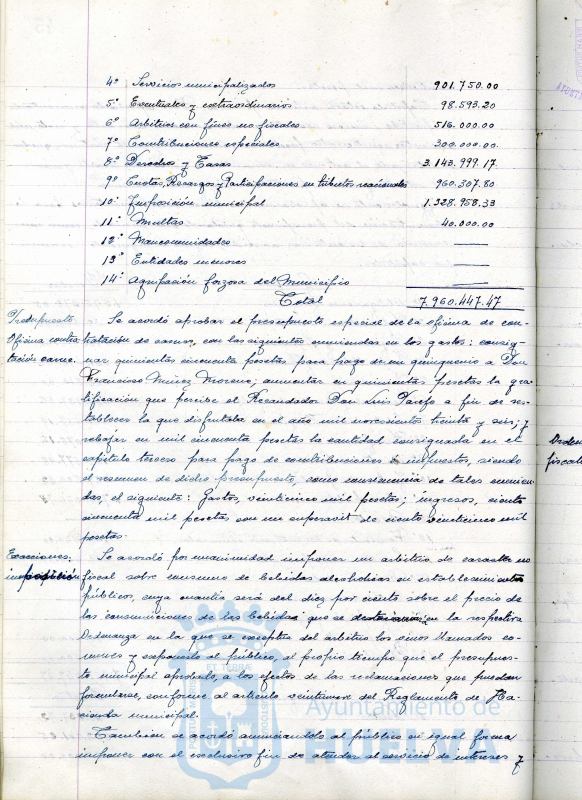 4º Servicios municipalizados 901.750.00
5º Eventuales y extraordinarios 98.593.20
6º Arbitrios con fines no fiscales 516.000.00
7º Contribuciones especiales 300.000.00
8º Derechos y Tasas 3.143.999.17
9º Cuotas, Recargos y Participaciones en tributos nacionales 960.307.80
10º Imposición municipal 1.928.958.33
11º Multas 40.000.00
12º Mancomunidades
13º Entidades menores
14º Agrupación forzosa del Municipio
Total 7.960.447.47
Presupuesto
Oficina contra-
tación carne.
Se acordó aprobar el presupuesto especial de la oficina de con-
tratación de carnes, con las siguientes enmiendas en los gastos: consig-
nar quinientas cincuenta pesetas para pago de un quinquenio a Don
Francisco Muñoz Moreno; aumentar en quinientas pesetas la gra-
tificación que percibe el Recaudador Don Luis a fin de res-
tablecer la que disfrutaba en el año mil novecientos treinta y seis; y
rebajar en mil cincuenta pesetas la cantidad consignada en el
capítulo tercero para pago de contribuciones é impuestos, siendo
el resumen de dicho presupuesto, como consecuencia de tales enmien-
das, el siguiente: Gastos, veinticinco mil pesetas; ingresos, ciento
cincuenta mil pesetas con un superavit de ciento veinticinco mil
pesetas.
Exacciones,
imposición
Se acordó por unanimidad imponer un arbitrio de caracter no
fiscal sobre consumo de bebidas alcoholicas en establecimientos
públicos, cuya cuantía será del diez por ciento sobre el precio de
las consumiciones de las bebidas que se en la respectiva
Ordenanza en la que se exceptua del arbitrio los vinos llamados co-
munes y exponerlo al público, al propio tiempo que el presupues-
to municipal aprobado, a los efectos de las reclamaciones que puedan
formularse, conforme al artículo veintinueve del Reglamento de Ha-
cienda municipal.
Tambien se acordó anunciandolo al público en igual forma
imponer con el exclusivo fin de atender al servicio de intereses y
Orden
fiscal
Ayuntamiento de
HUELVA